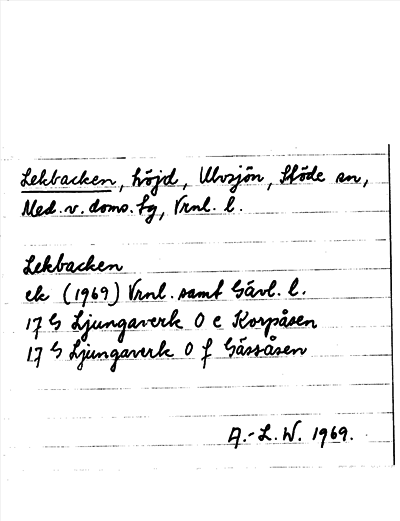 Lekbacken, höjd, Ulvsjön, Stöde sn,
Med. v. doms. fg, Vrnl. l.
Lekbacken
ek (1969) Vrnl. samt Gävl. l.
17 G Ljungaverk 0 e Korpåsen
17 G Ljungaverk 0 f Gässåsen
A.-L.W. 1969.